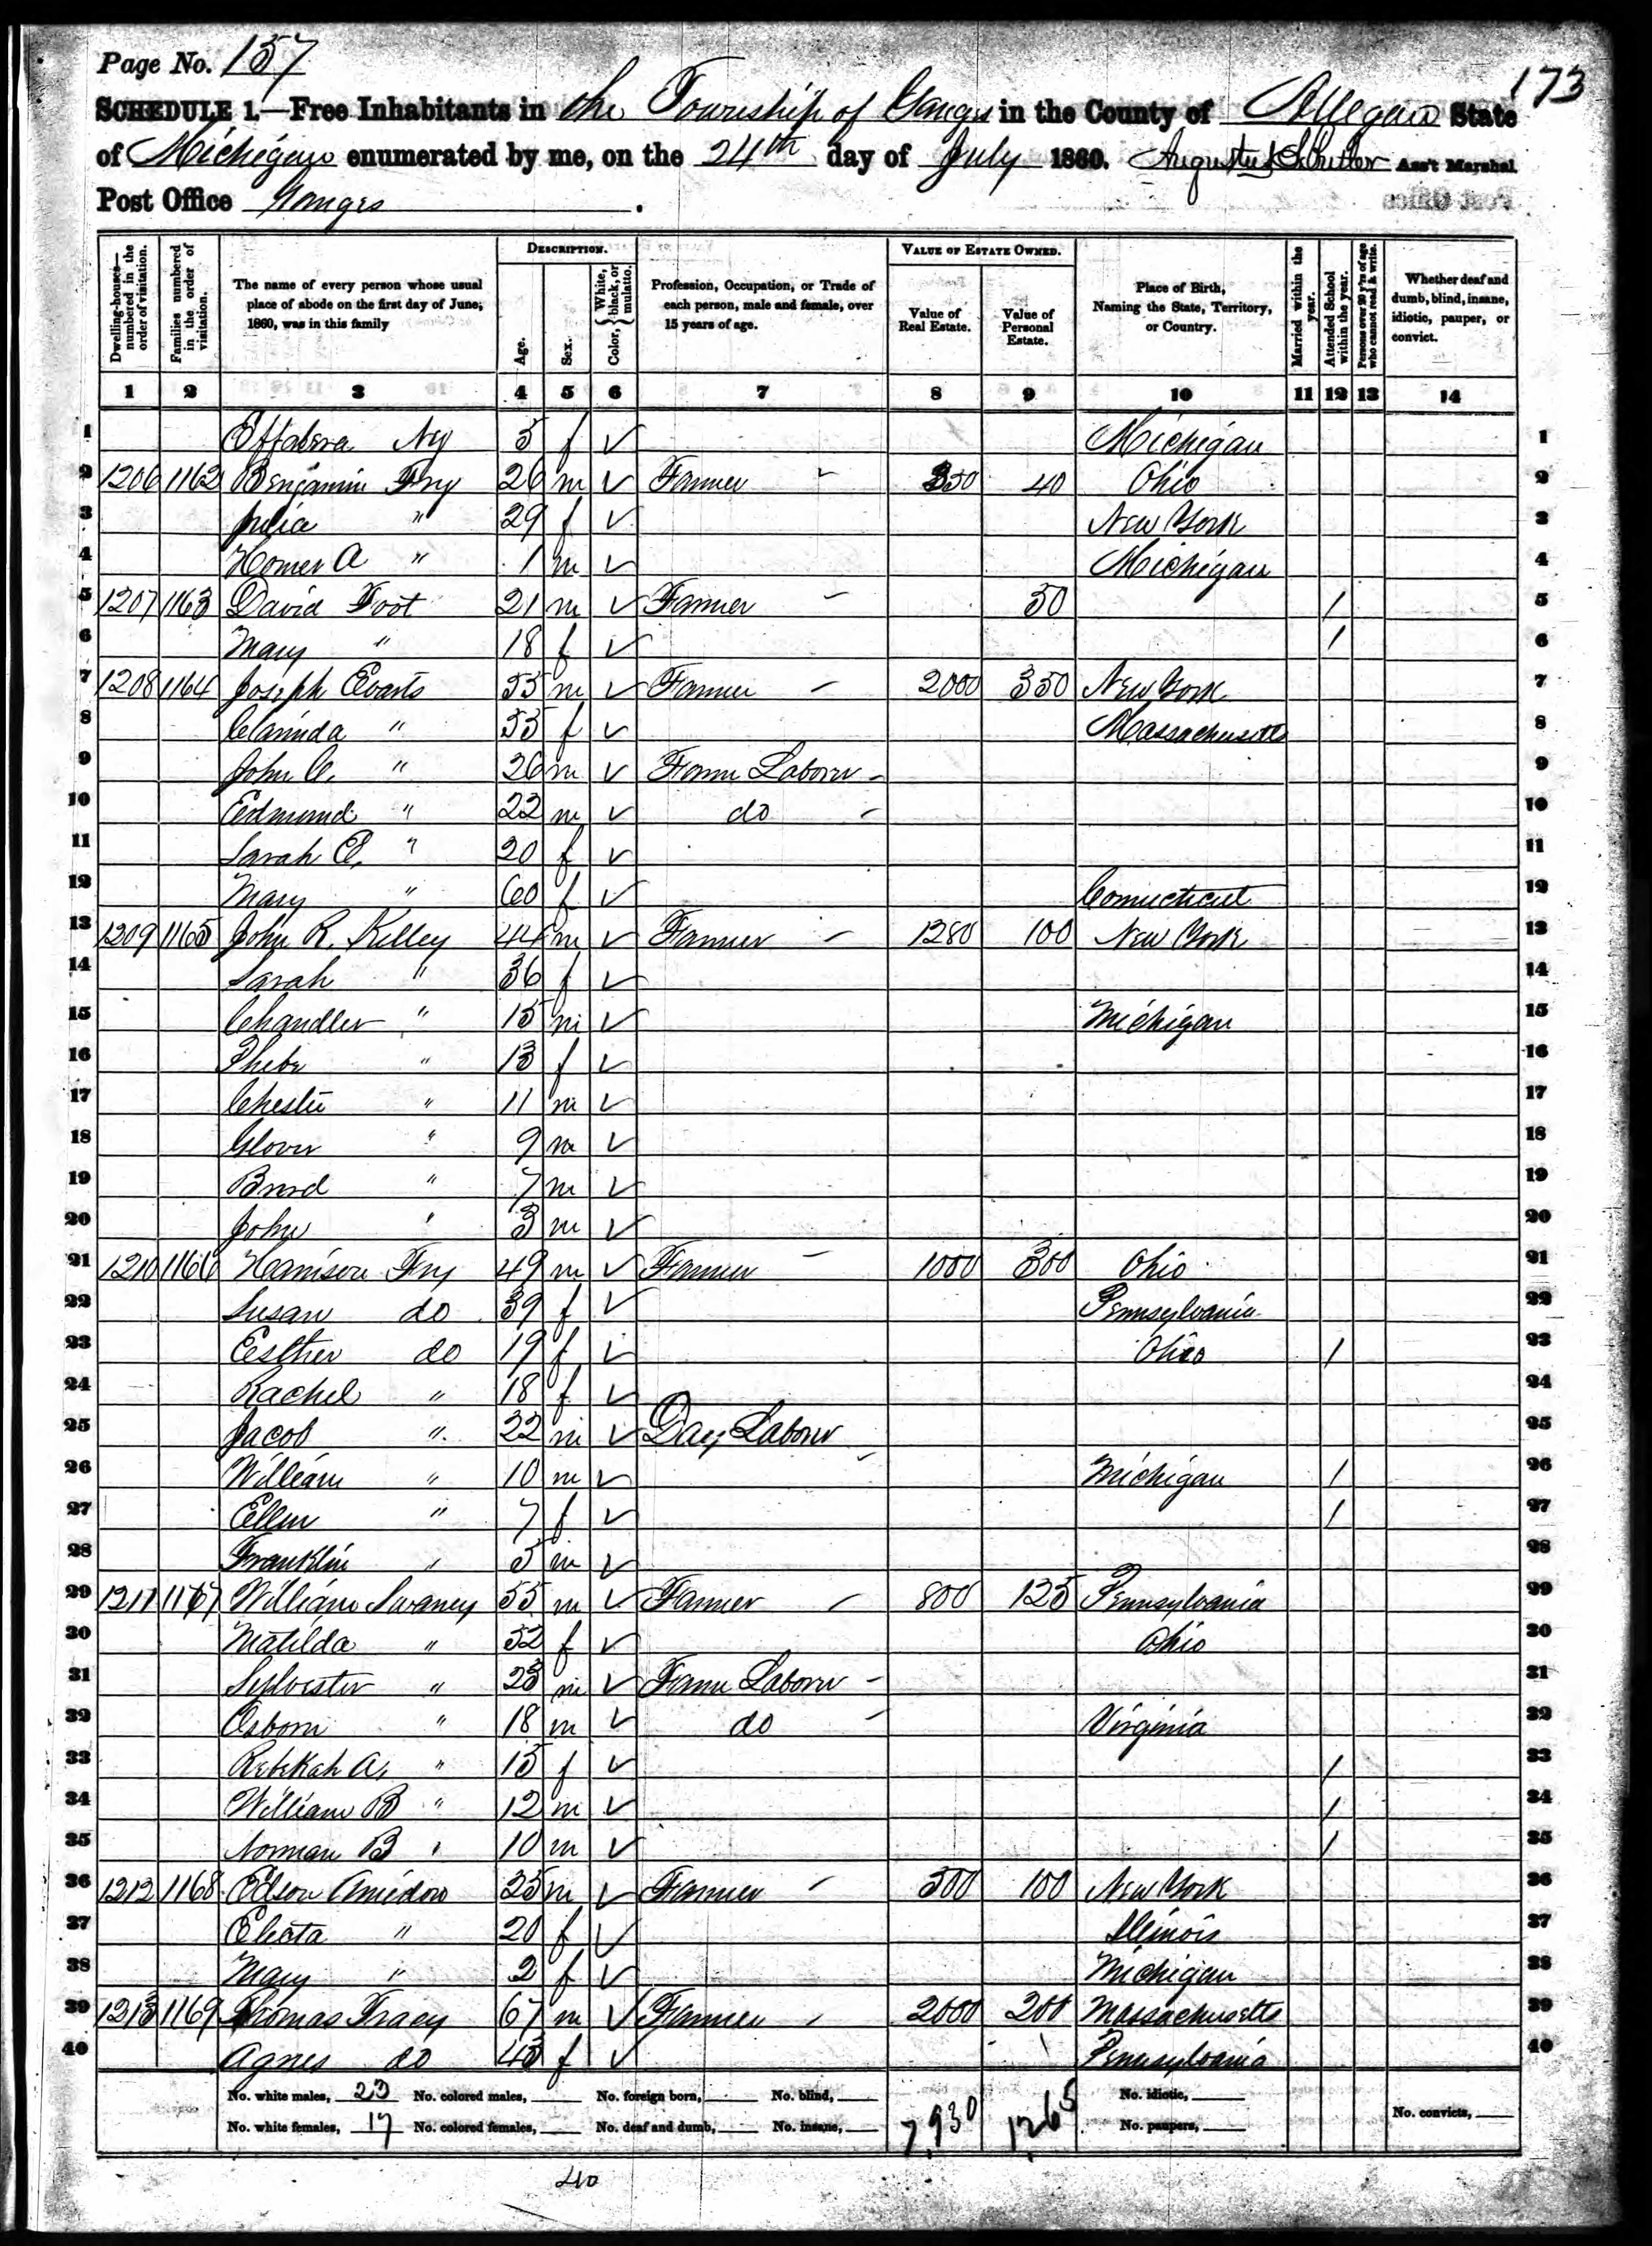 Page No. 157
173
SCHEDULE 1.—Free Inhabitants in the Township of Ganges in the County of Allegan State
of Michigan enumerated by me, on the 24th day of July 1860. Ass't Marshal
Post Office Ganges.
Dwelling-houses—numbered in the order of visitation. Families numbered in the order of visitation. The name of every person whose usual place of abode on the first day of June, 1860, was in this family DESCRIPTION. Age. Sex. Color, {White, black, or mulatto. Profession, Occupation, or Trade of each person, male and female, over 15 years of age. VALUE OF ESTATE OWNED. Value of Real Estate. Value of Personal Estate. Place of Birth, Naming the State, Territory, or Country. Married within the year. Attended School within the year. Persons over 20 y'rs of age who cannot read & write. Whether deaf and dumb, blind, insane, idiotic, pauper, or convict.
1 2 3 4 5 6 7 8 9 10 11 12 13 14
1 5 f ✓ Michigan 1
2 1206 1162 Benjamin Fry 26 m ✓ Farmer 350 40 Ohio 2
3 Julia " 29 f ✓ New York 3
4 Homer A " 1 m ✓ Michigan 4
5 1207 1163 David Foot 21 m ✓ Farmer 50 / 5
6 Mary " 18 f ✓ / 6
7 1208 1164 Joseph Evarts 55 m ✓ Farmer 2000 350 New York 7
8 Clarinda " 55 f ✓ Massachusetts 8
9 John C. " 26 m ✓ Farm Laborer 9
10 Edmund " 22 m ✓ do 10
11 Sarah E. " 20 f ✓ 11
12 Mary " 60 f ✓ Connecticut 12
13 1209 1165 John R. Kelley 44 m ✓ Farmer 1280 100 New York 13
14 Sarah " 36 f ✓ 14
15 Chandler " 15 m ✓ Michigan 15
16 Phebe " 13 f ✓ 16
17 Chester " 11 m ✓ 17
18 Glover " 9 m ✓ 18
19 " 7 m ✓ 19
20 John " 3 m ✓ 20
21 1210 1166 Harrison Fry 49 m ✓ Farmer 1000 300 Ohio 21
22 Susan do 39 f ✓ Pennsylvania 22
23 Esther do 19 f ✓ Ohio / 23
24 Rachel " 18 f ✓ 24
25 Jacob " 22 m ✓ Day Laborer 25
26 William " 10 m ✓ Michigan / 26
27 Ellen " 7 f ✓ / 27
28 Franklin " 5 m ✓ 28
29 1211 1167 William Swaney 55 m ✓ Farmer 800 125 Pennsylvania 29
30 Matilda " 52 f ✓ Ohio 30
31 Sylvester " 23 m ✓ Farm Laborer 31
32 Osborn " 18 m ✓ do Virginia 32
33 Rebekah A. " 15 f ✓ / 33
34 William B " 12 m ✓ / 34
35 Norman B " 10 m ✓ / 35
36 1212 1168 Edson Amidon 25 m ✓ Farmer 500 100 New York 36
37 Electa " 20 f ✓ Illinois 37
38 Mary " 2 f ✓ Michigan 38
39 1213 1169 Thomas Tracy 67 m ✓ Farmer 2000 200 Massachusetts 39
40 Agnes do 43 f ✓ Pennsylvania 40
No. white males, 23 No. colored males, No. foreign born, No. blind, No. idiotic,
No. white females, 17 No. colored females, No. deaf and dumb, No. insane, 7,930 1265 No. paupers, No. convicts,
40